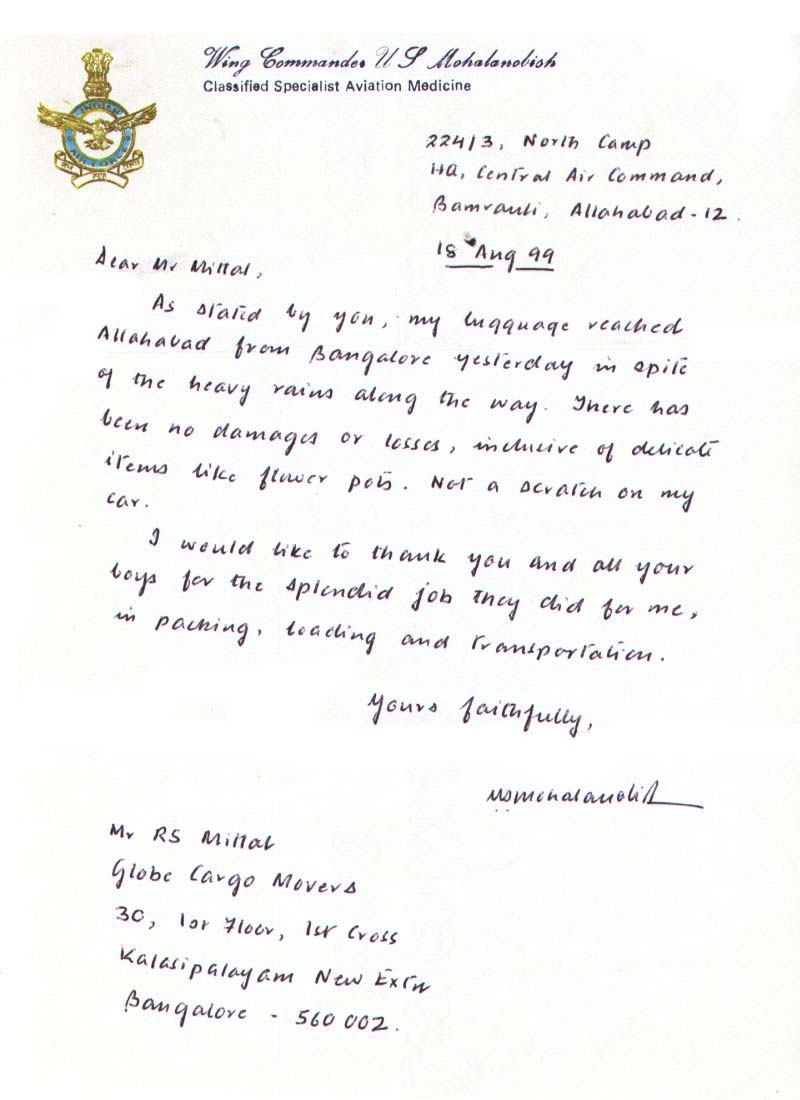 Wing Commander U S Mohalanobish
Classified Specialist Aviation Medicine
INDIAN
AIR FORCE
224/3, North Camp
HQ, Central Air Command,
Bamrauli, Allahabad - 12.
18 Aug 99
Dear Mr Mittal,
As stated by you, my lugguage reached
Allahabad from Bangalore yesterday in spite
of the heavy rains along the way. There has
been no damages or losses, inclusive of delicate
items like flower pots. Not a scratch on my
car.
I would like to thank you and all your
boys for the splendid job they did for me,
in packing, loading and transportation.
Yours faithfully,
USMohalanobish
Mr RS Mittal
Globe Cargo Movers
30, 1st Floor, 1st Cross
Kalasipalayam New Extn
Bangalore - 560 002.